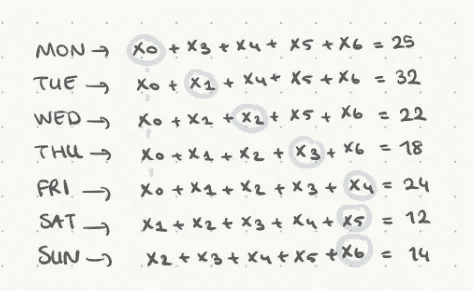 MON → x0 + x3 + x4 + x5 + x6 = 25
TUE → x0 + x1 + x4 + x5 + x6 = 32
WED → x0 + x1 + x2 + x5 + x6 = 22
THU → x0 + x1 + x2 + x3 + x6 = 18
FRI → x0 + x1 + x2 + x3 + x4 = 24
SAT → x1 + x2 + x3 + x4 + x5 = 12
SUN → x2 + x3 + x4 + x5 + x6 = 14